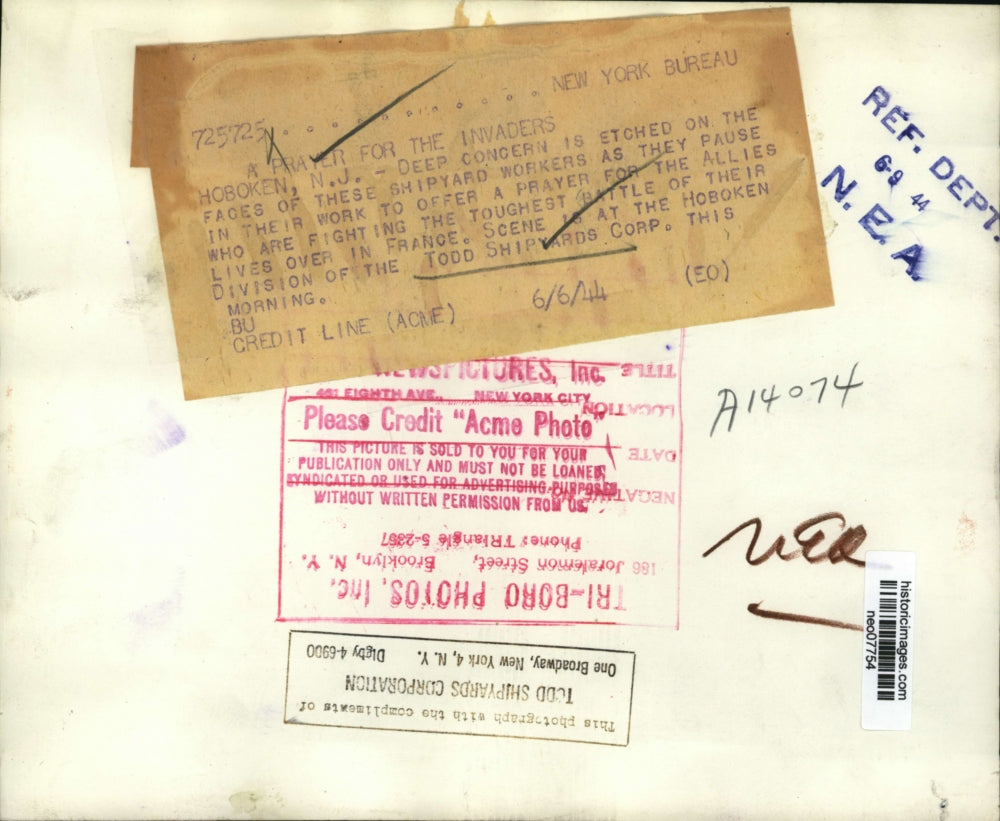 725725 . . . . . . . . . . . NEW YORK BUREAU
A PRAYER FOR THE INVADERS
HOBOKEN, N.J. - DEEP CONCERN IS ETCHED ON THE
FACES OF THESE SHIPYARD WORKERS AS THEY PAUSE
IN THEIR WORK TO OFFER A PRAYER FOR THE ALLIES
WHO ARE FIGHTING THE TOUGHEST BATTLE OF THEIR
LIVES OVER IN FRANCE. SCENE IS AT THE HOBOKEN
DIVISION OF THE TODD SHIPYARDS CORP. THIS
MORNING.
BU
CREDIT LINE (ACME) 6/6/44 (EO)
REF. DEPT.
6-9 44
N. E. A.
NEWSPICTURES, Inc.
461 EIGHTH AVE., NEW YORK CITY
Please Credit "Acme Photo"
THIS PICTURE IS SOLD TO YOU FOR YOUR
PUBLICATION ONLY AND MUST NOT BE LOANED,
SYNDICATED OR USED FOR ADVERTISING PURPOSES
WITHOUT WRITTEN PERMISSION FROM US.
TRI-BORO PHOTOS, Inc.
186 Joralemon Street, Brooklyn, N. Y.
Phone: TRiangle 5-2357
NEGATIVE NO.
DATE
LOCATION
TITLE
A14074
historicimages.com
neo07754
This photograph with the compliments of
TODD SHIPYARDS CORPORATION
One Broadway, New York 4, N. Y. Digby 4-6900